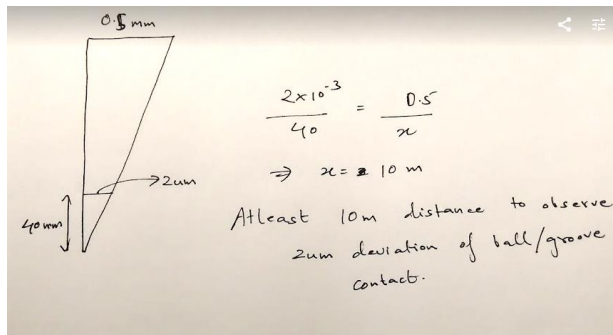 0.5 mm
2×10⁻³ / 40 = 0.5 / x
→ 2um
40mm
⇒ x = 10 m
Atleast 10m distance to observe
2um deviation of ball/groove
contact.